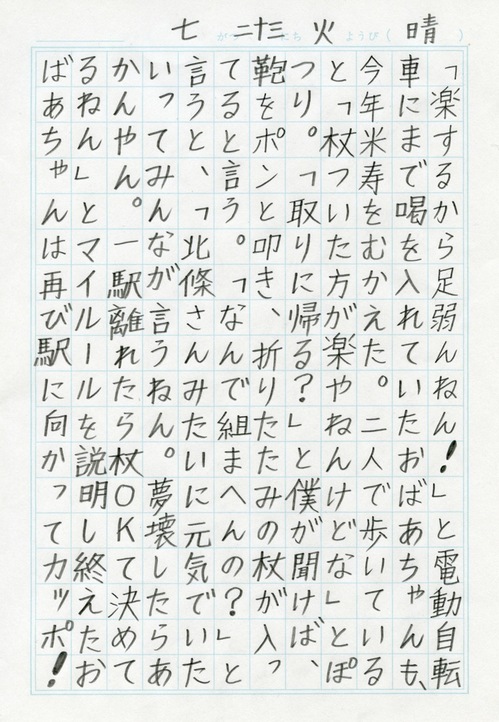 七 がつ 二十三 にち 火 ようび( 晴 )
「楽するから足弱んねん!」と電動自転
車にまで喝を入れていたおばあちゃんも、
今年米寿をむかえた。二人で歩いている
と「杖ついた方が楽やねんけどな」とぽ
つり。「取りに帰る?」と僕が聞けば、
鞄をポンと叩き、折りたたみの杖が入っ
てると言う。「なんで組まへんの?」と
言うと、「北條さんみたいに元気でいた
いってみんなが言うねん。夢壊したらあ
かんやん。一駅離れたら杖OKて決めて
るねん」とマイルールを説明し終えたお
ばあちゃんは再び駅に向かってカッポ!